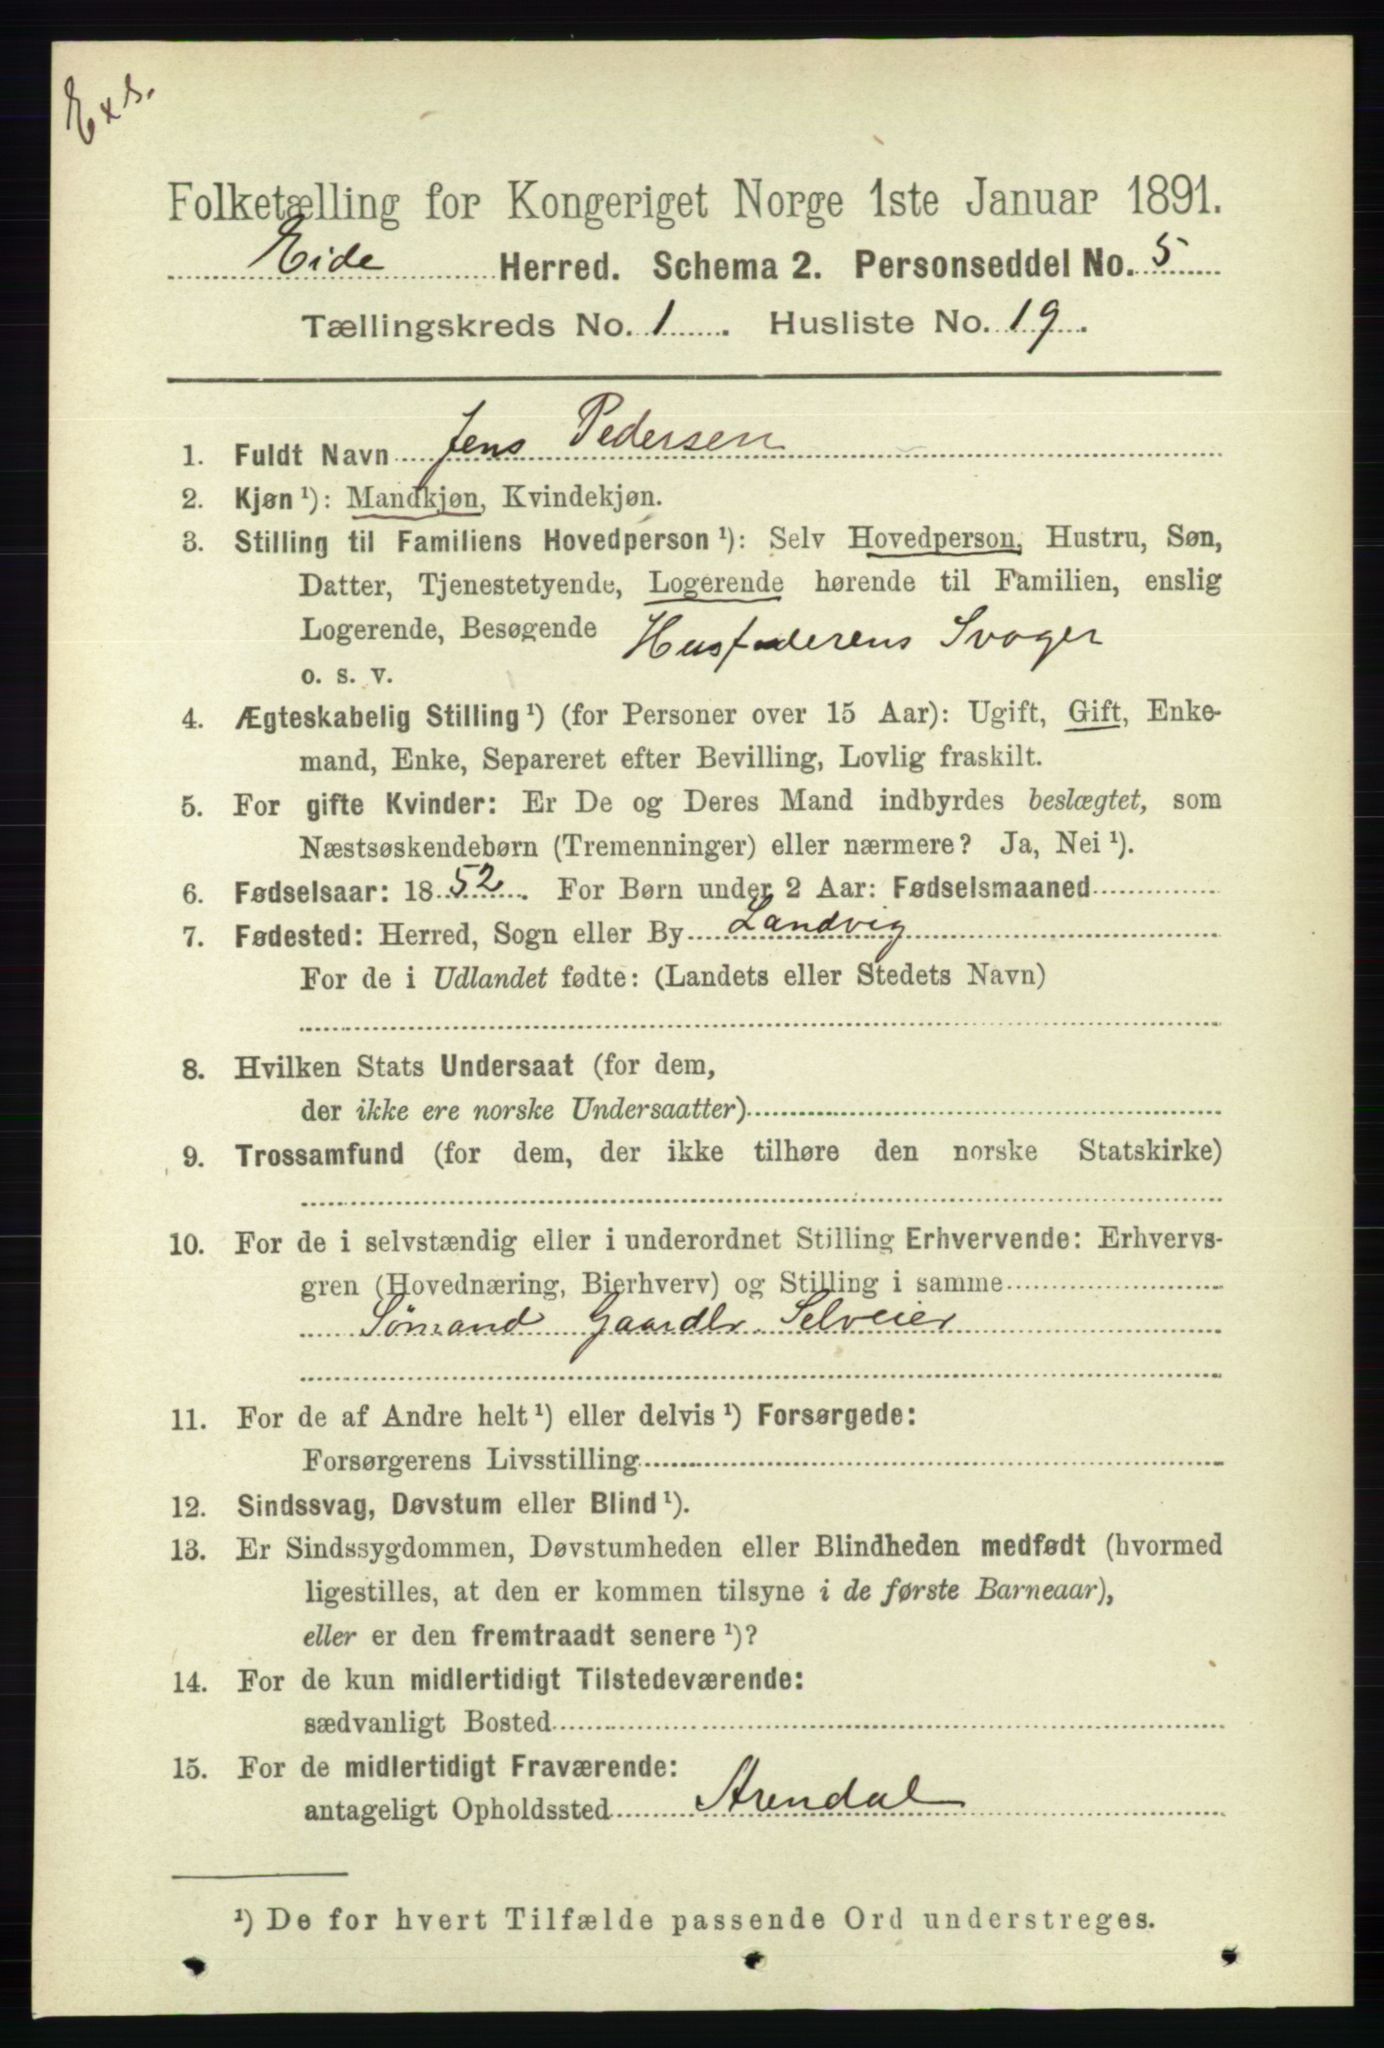 Exs.
Folketælling for Kongeriget Norge 1ste Januar 1891.
Eide Herred. Schema 2. Personseddel No. 5
Tællingskreds No. 1. Husliste No. 19.
1. Fuldt Navn Jens Pedersen
2. Kjøn ¹): Mandkjøn, Kvindekjøn.
3. Stilling til Familiens Hovedperson ¹): Selv Hovedperson, Hustru, Søn,
Datter, Tjenestetyende, Logerende hørende til Familien, enslig
Logerende, Besøgende Husfaderens Svoger
o. s. v.
4. Ægteskabelig Stilling ¹) (for Personer over 15 Aar): Ugift, Gift, Enke-
mand, Enke, Separeret efter Bevilling, Lovlig fraskilt.
5. For gifte Kvinder: Er De og Deres Mand indbyrdes beslægtet, som
Næstsøskendebørn (Tremenninger) eller nærmere? Ja, Nei ¹).
6. Fødselsaar: 1852. For Børn under 2 Aar: Fødselsmaaned
7. Fødested: Herred, Sogn eller By Landvig
For de i Udlandet fødte: (Landets eller Stedets Navn)
8. Hvilken Stats Undersaat (for dem,
der ikke ere norske Undersaatter)
9. Trossamfund (for dem, der ikke tilhøre den norske Statskirke)
10. For de i selvstændig eller i underordnet Stilling Erhvervende: Erhvervs-
gren (Hovednæring, Bierhverv) og Stilling i samme
Sømand Gaardbr. Selveier
11. For de af Andre helt ¹) eller delvis ¹) Forsørgede:
Forsørgerens Livsstilling
12. Sindssvag, Døvstum eller Blind ¹).
13. Er Sindssygdommen, Døvstumheden eller Blindheden medfødt (hvormed
ligestilles, at den er kommen tilsyne i de første Barneaar),
eller er den fremtraadt senere ¹)?
14. For de kun midlertidigt Tilstedeværende:
sædvanligt Bosted
15. For de midlertidigt Fraværende:
antageligt Opholdssted Arendal
¹) De for hvert Tilfælde passende Ord understreges.